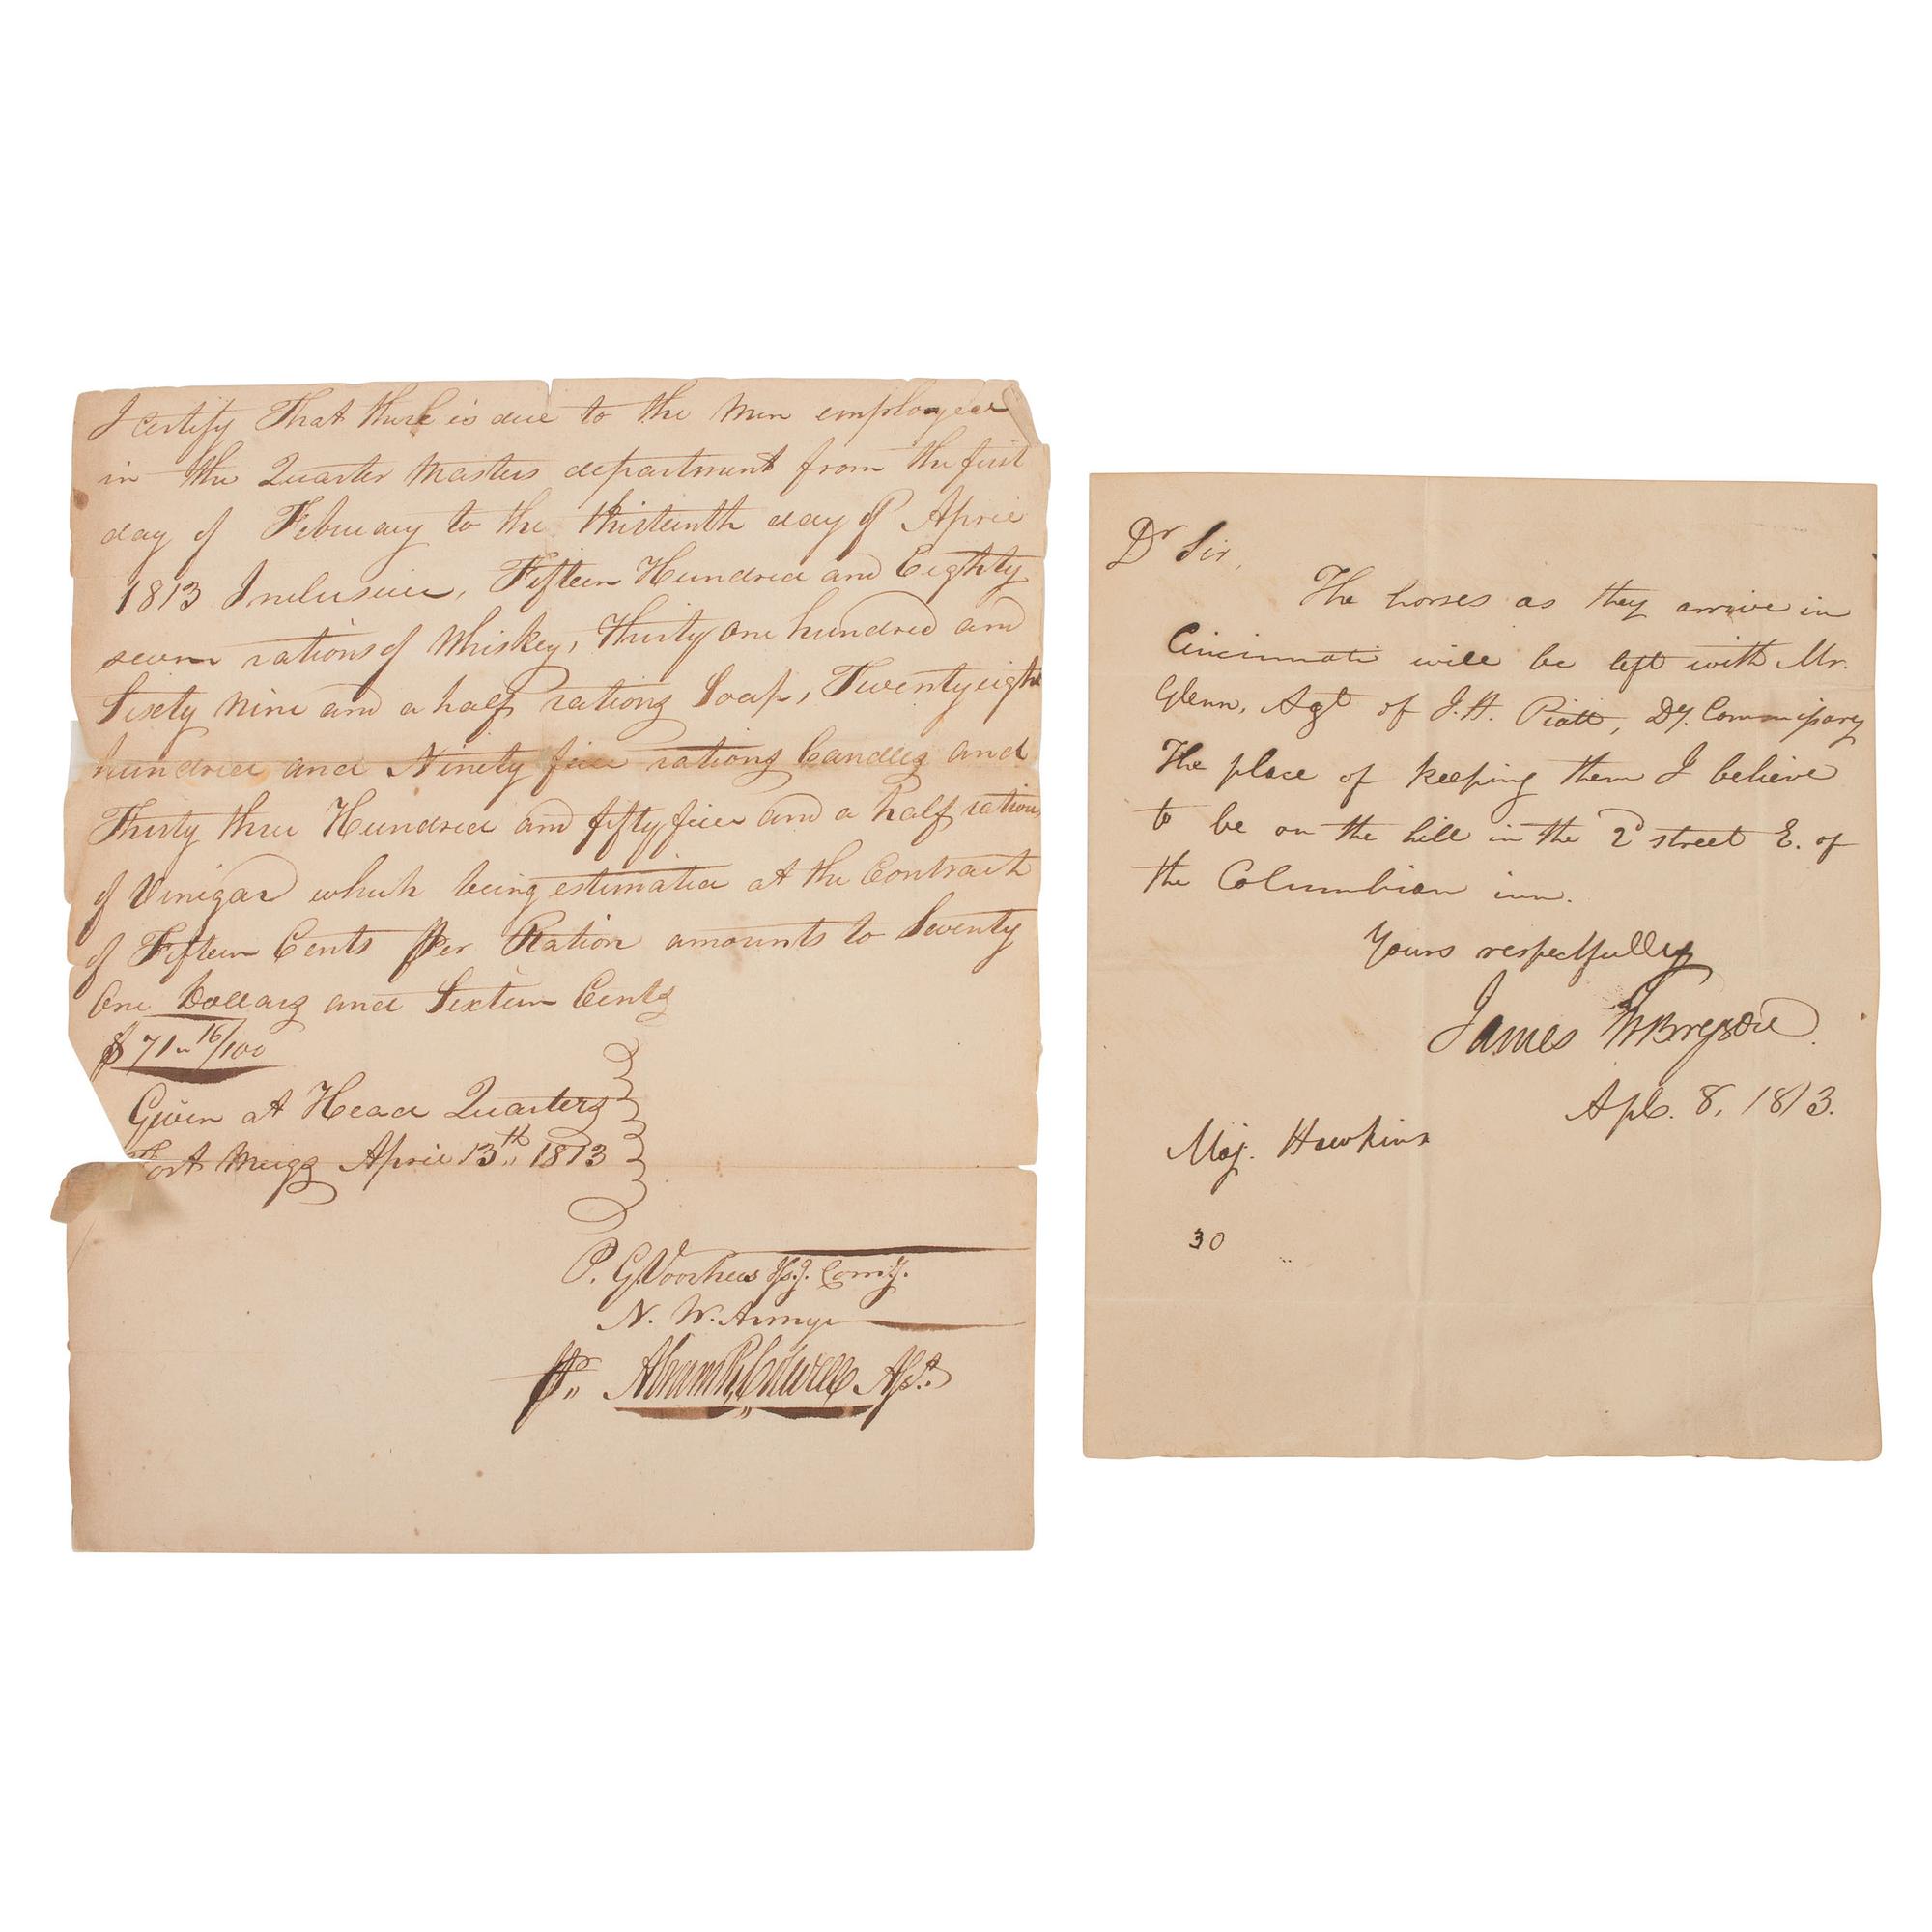 I certify That there is due to the men employed
in the Quarter Masters department from the first
day of February to the thirteenth day of April
1813 Inclusive, Fifteen Hundred and Eighty
seven rations of Whiskey, Thirty one hundred and
Sixty nine and a half rations Soap, Twenty eight
hundred and Ninety five rations Candles and
Thirty three Hundred and fifty five and a half rations
of Vinigar which being estimated at the Contract
of Fifteen Cents Per Ration amounts to Seventy
One Dollars and Sixteen Cents
$ 71 16/100
Given at Head Quarters
Fort Meigs April 13th 1813
P. G. Voorhees
N. W. Army
Dr Sir,
The horses as they arrive in
Cincinnati will be left with Mr.
Glenn, Agt of J. H. Piatt, Dy. Commissary
The place of keeping them I believe
to be on the hill in the 2d street E. of
the Columbian inn.
Yours respectfully
James
Apl. 8, 1813.
Maj. Hawkins
30